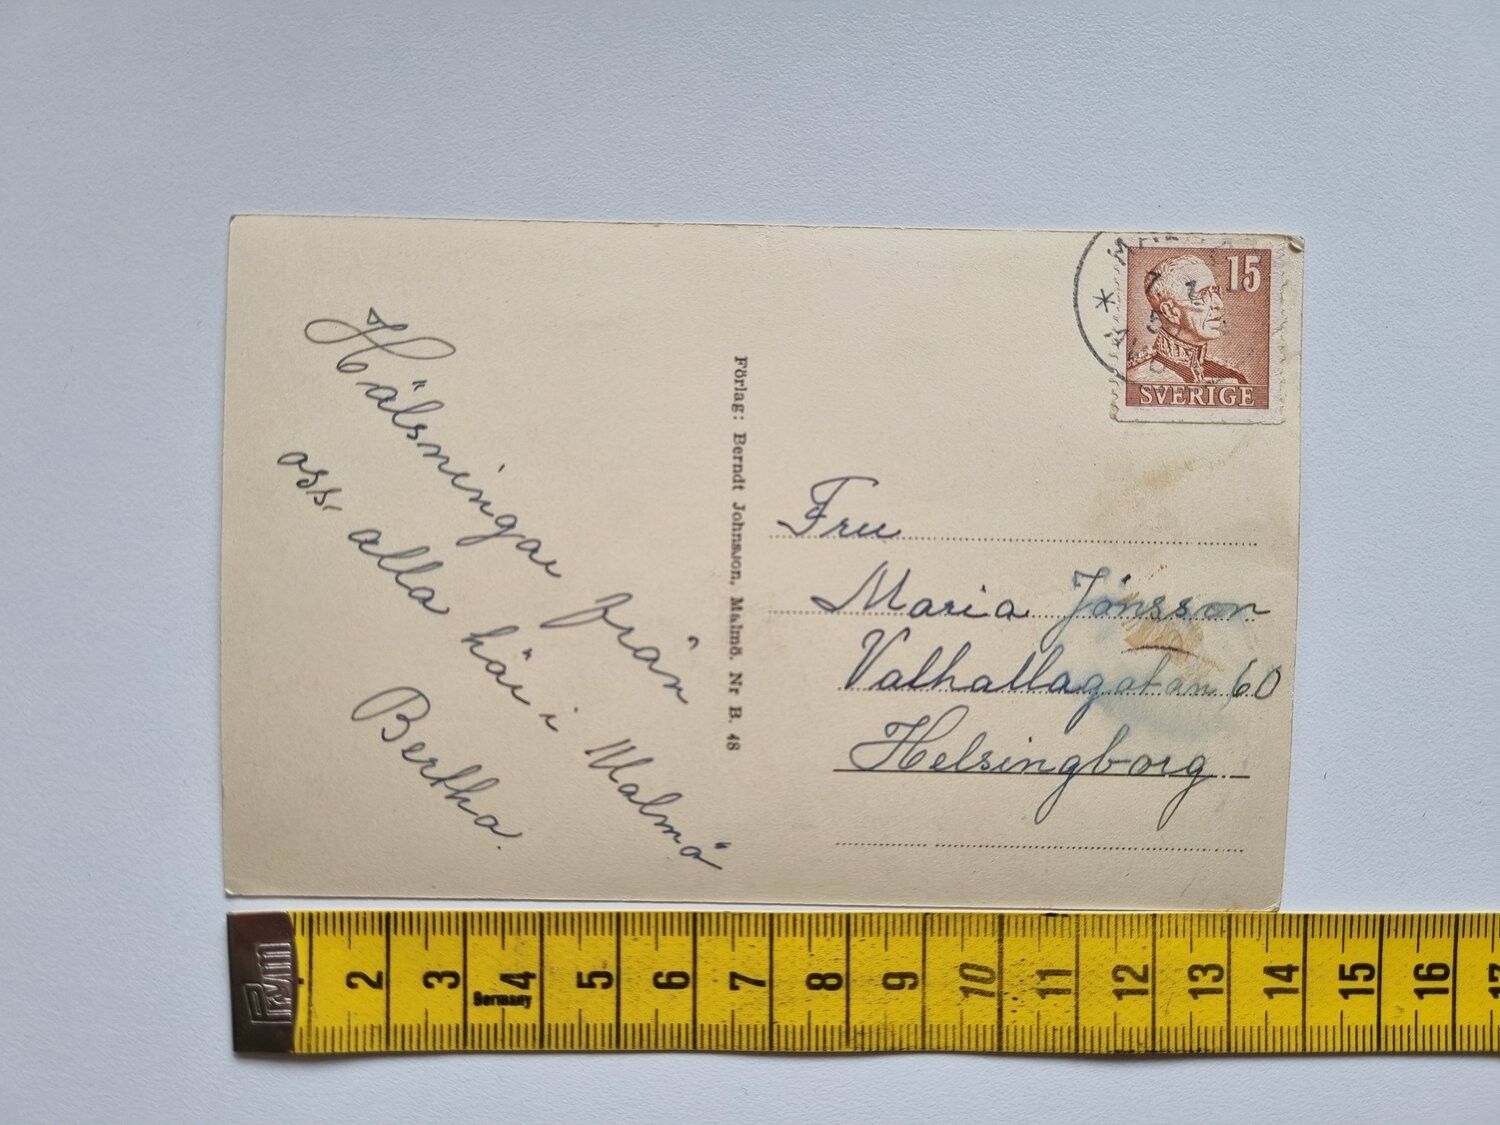 Hälsningar från
oss alla här i Malmö
Bertha.
Förlag: Berndt Johnsson, Malmö. Nr B. 48
15
SVERIGE
Fru
Maria Jönsson
Valhallagatan 60
Helsingborg
Prym
2 3 4 5 6 7 8 9 10 11 12 13 14 15 16 17
Germany